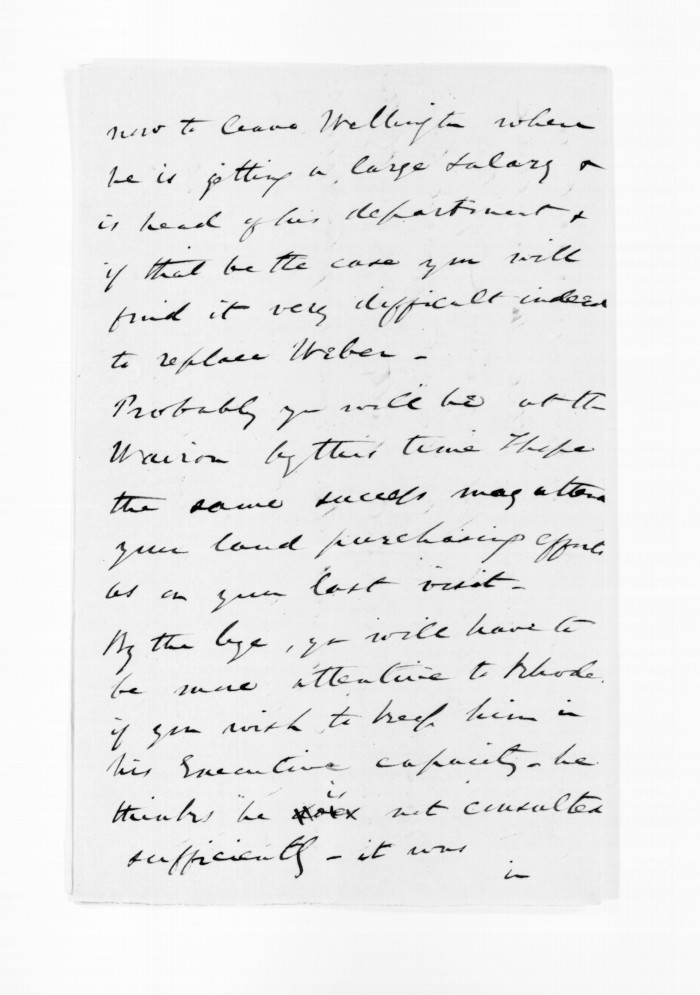 now to leave Wellington where
he is getting a large salary &
is head of his department &
if that be the case you will
find it very difficult indeed
to replace Weber -
Probably you will be at the
Wairoa by this time I hope
the same success may attend
your land purchasing efforts
as on your last visit -
By the bye, you will have to
be more attentive to Rhodes
if you wish to keep him in
his Executive capacity - he
thinks he is not consulted
sufficiently - it was
in